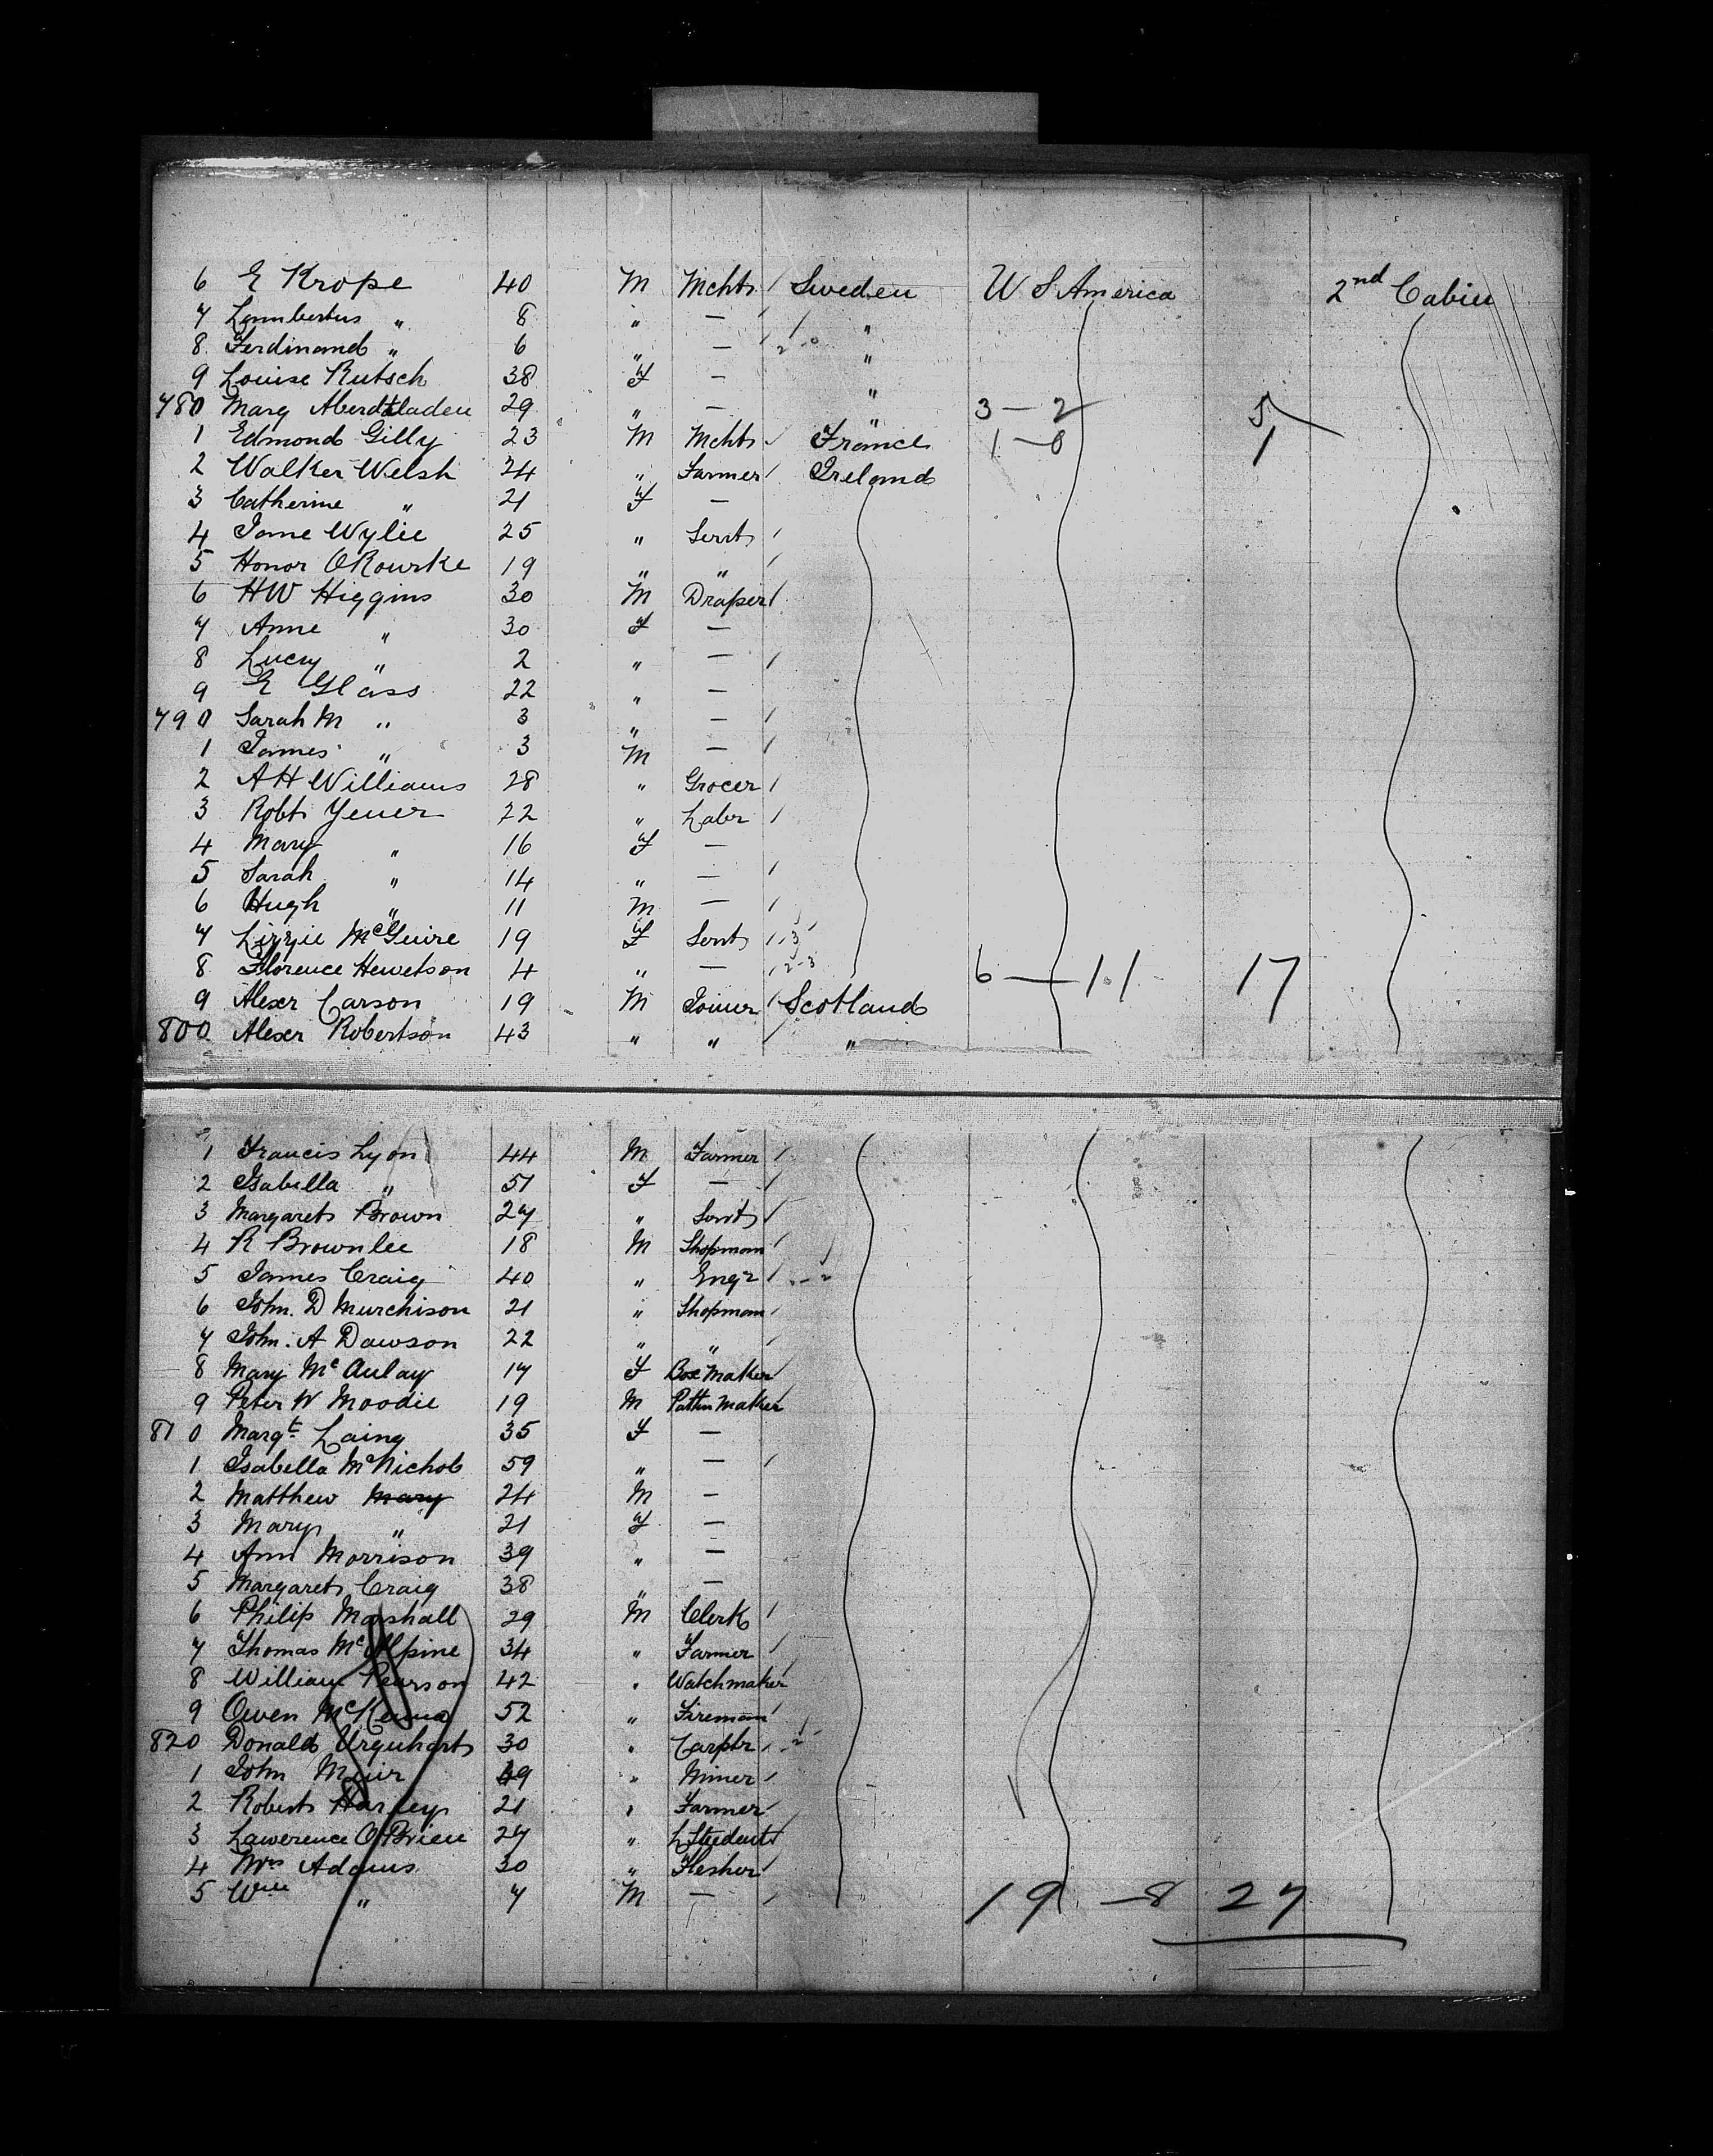 6 E Krope 40 M Mcht Sweden U S America 2nd Cabin
7 Lambertus " 8 " — "
8 Ferdinand " 6 " — "
9 Louise Rutsch 38 F — "
780 Marg 29 " — " 3 — 2 5
1 Edmond Gilly 23 M Mcht France 1 — 0 1
2 Walker Welsh 24 " Farmer Ireland
3 Catherine " 21 F —
4 Jane Wylie 25 " Servt
5 Honor O'Rourke 19 " "
6 HW Higgins 30 M Draper
7 Anne " 30 F —
8 Lucy " 2 " —
9 E Glass 22 " —
790 Sarah M " 3 " —
1 James " 3 M —
2 A H Williams 28 " Grocer
3 Robt Yeuer 22 " Labr
4 Mary " 16 F —
5 Sarah " 14 " —
6 Hugh " 11 M —
7 Lizzie McGuire 19 F Servt
8 Florence Hewetson 4 " — 6 — 11 17
9 Alexr Carson 19 M Joiner Scotland
800 Alexr Robertson 43 " " "
1 Francis Lyon 44 M Farmer
2 Isabella " 51 F —
3 Margaret Brown 27 " Servt
4 R Brownlee 18 M Shopman
5 James Craig 40 " Engr
6 John. D Murchison 21 " Shopman
7 John. A Dawson 22 " "
8 Mary McAulay 17 F Box Maker
9 Peter W Moodie 19 M Pattn Maker
810 Margt Laing 35 F —
1 Isabella McNichol 59 " —
2 Matthew Mary 24 M —
3 Mary " 21 F —
4 Ann Morrison 39 " —
5 Margaret Craig 38 " —
6 Philip Marshall 29 M Clerk
7 Thomas McAlpine 34 " Farmer
8 William Pearson 42 " Watchmaker
9 Owen McKenna 52 " Fireman
820 Donald Urquhart 30 " Carptr
1 John Muir 49 " Miner
2 Robert Harley 21 " Farmer
3 Lawerence O'Brien 27 " L Student
4 Mrs Adams 30 " Flesher
5 Wm " 7 M — 19 — 8 27